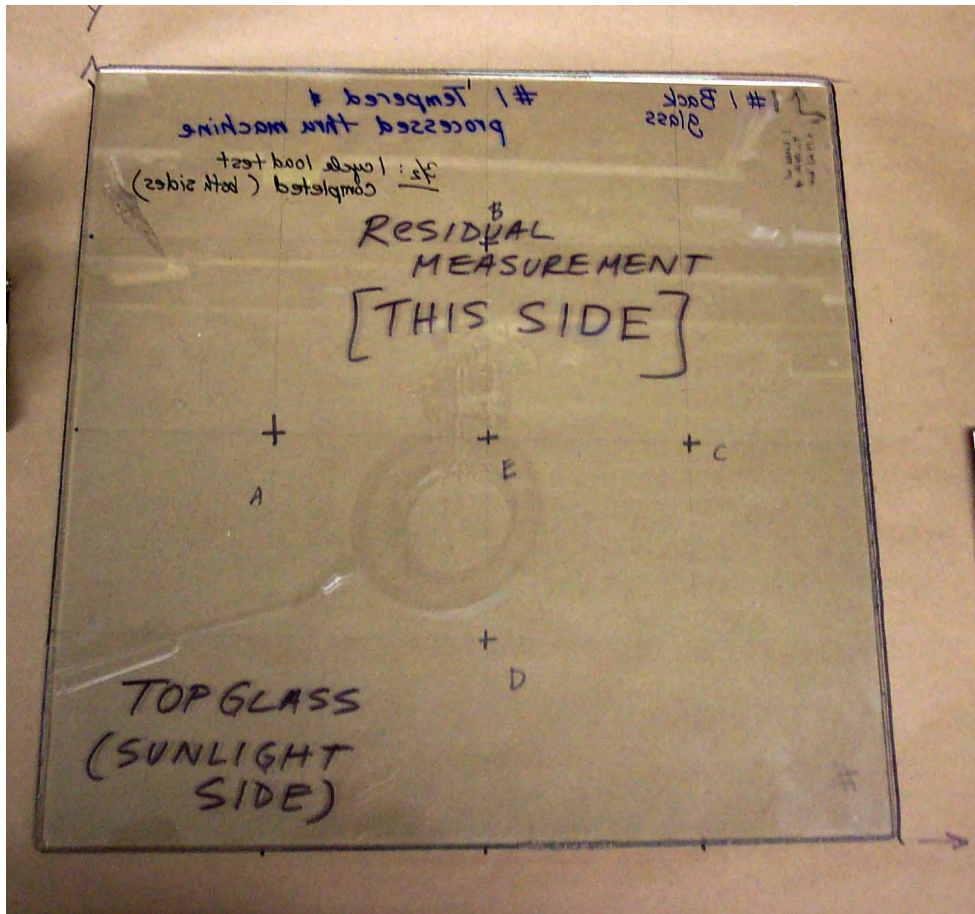 Y
#1 Tempered &
processed thru machine
#1 Back
glass
#1
3/2: 1 cycle load test
completed (both sides)
B
RESIDUAL
MEASUREMENT
[THIS SIDE]
A
E
C
D
TOP GLASS
(SUNLIGHT
SIDE)
#